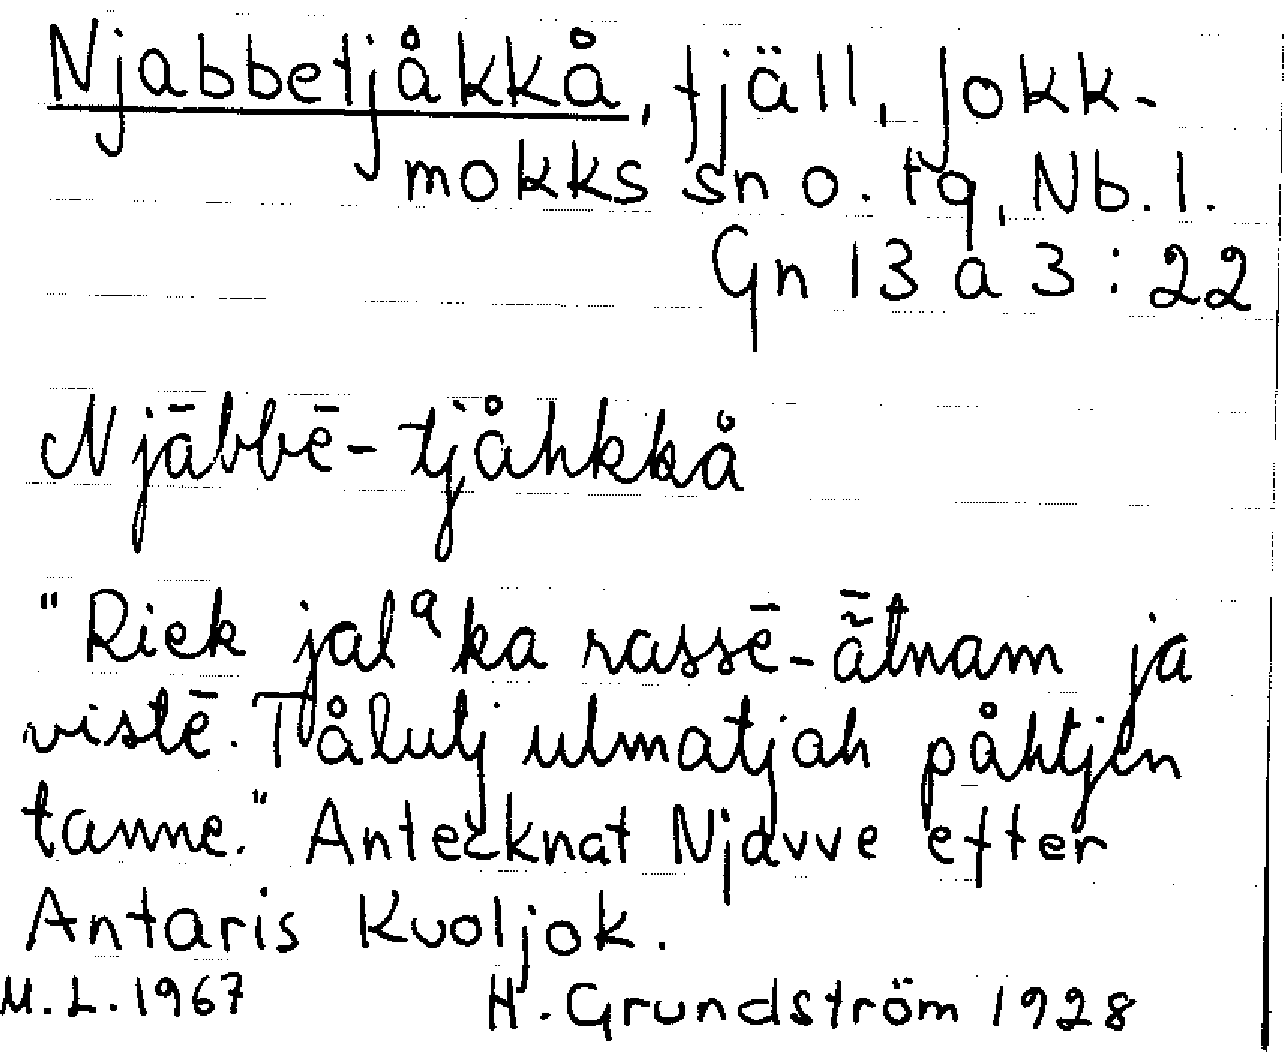 Njabbetjåkkå, fjäll, Jokk-
mokks sn o. tg, Nb. l.
Gn 13 a 3 : 22
Njābbē-tjåhkkå
"Riek jalᵃka rassē-ā̃tnam ja
vistē. Tålutj ulmatjah påhtjen
tanne." Antecknat Njavve efter
Antaris Kuoljok.
M. L. 1967 H. Grundström 1928